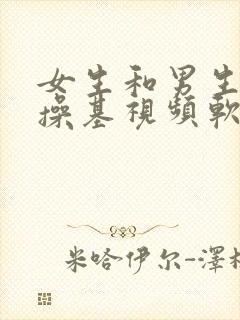 女生和男生
操基視頻軟
米哈伊尔-澤村